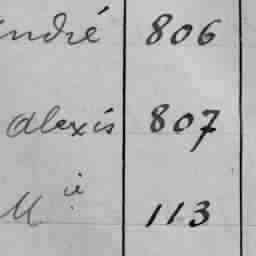 André 806
Alexis 807
M^ie 113